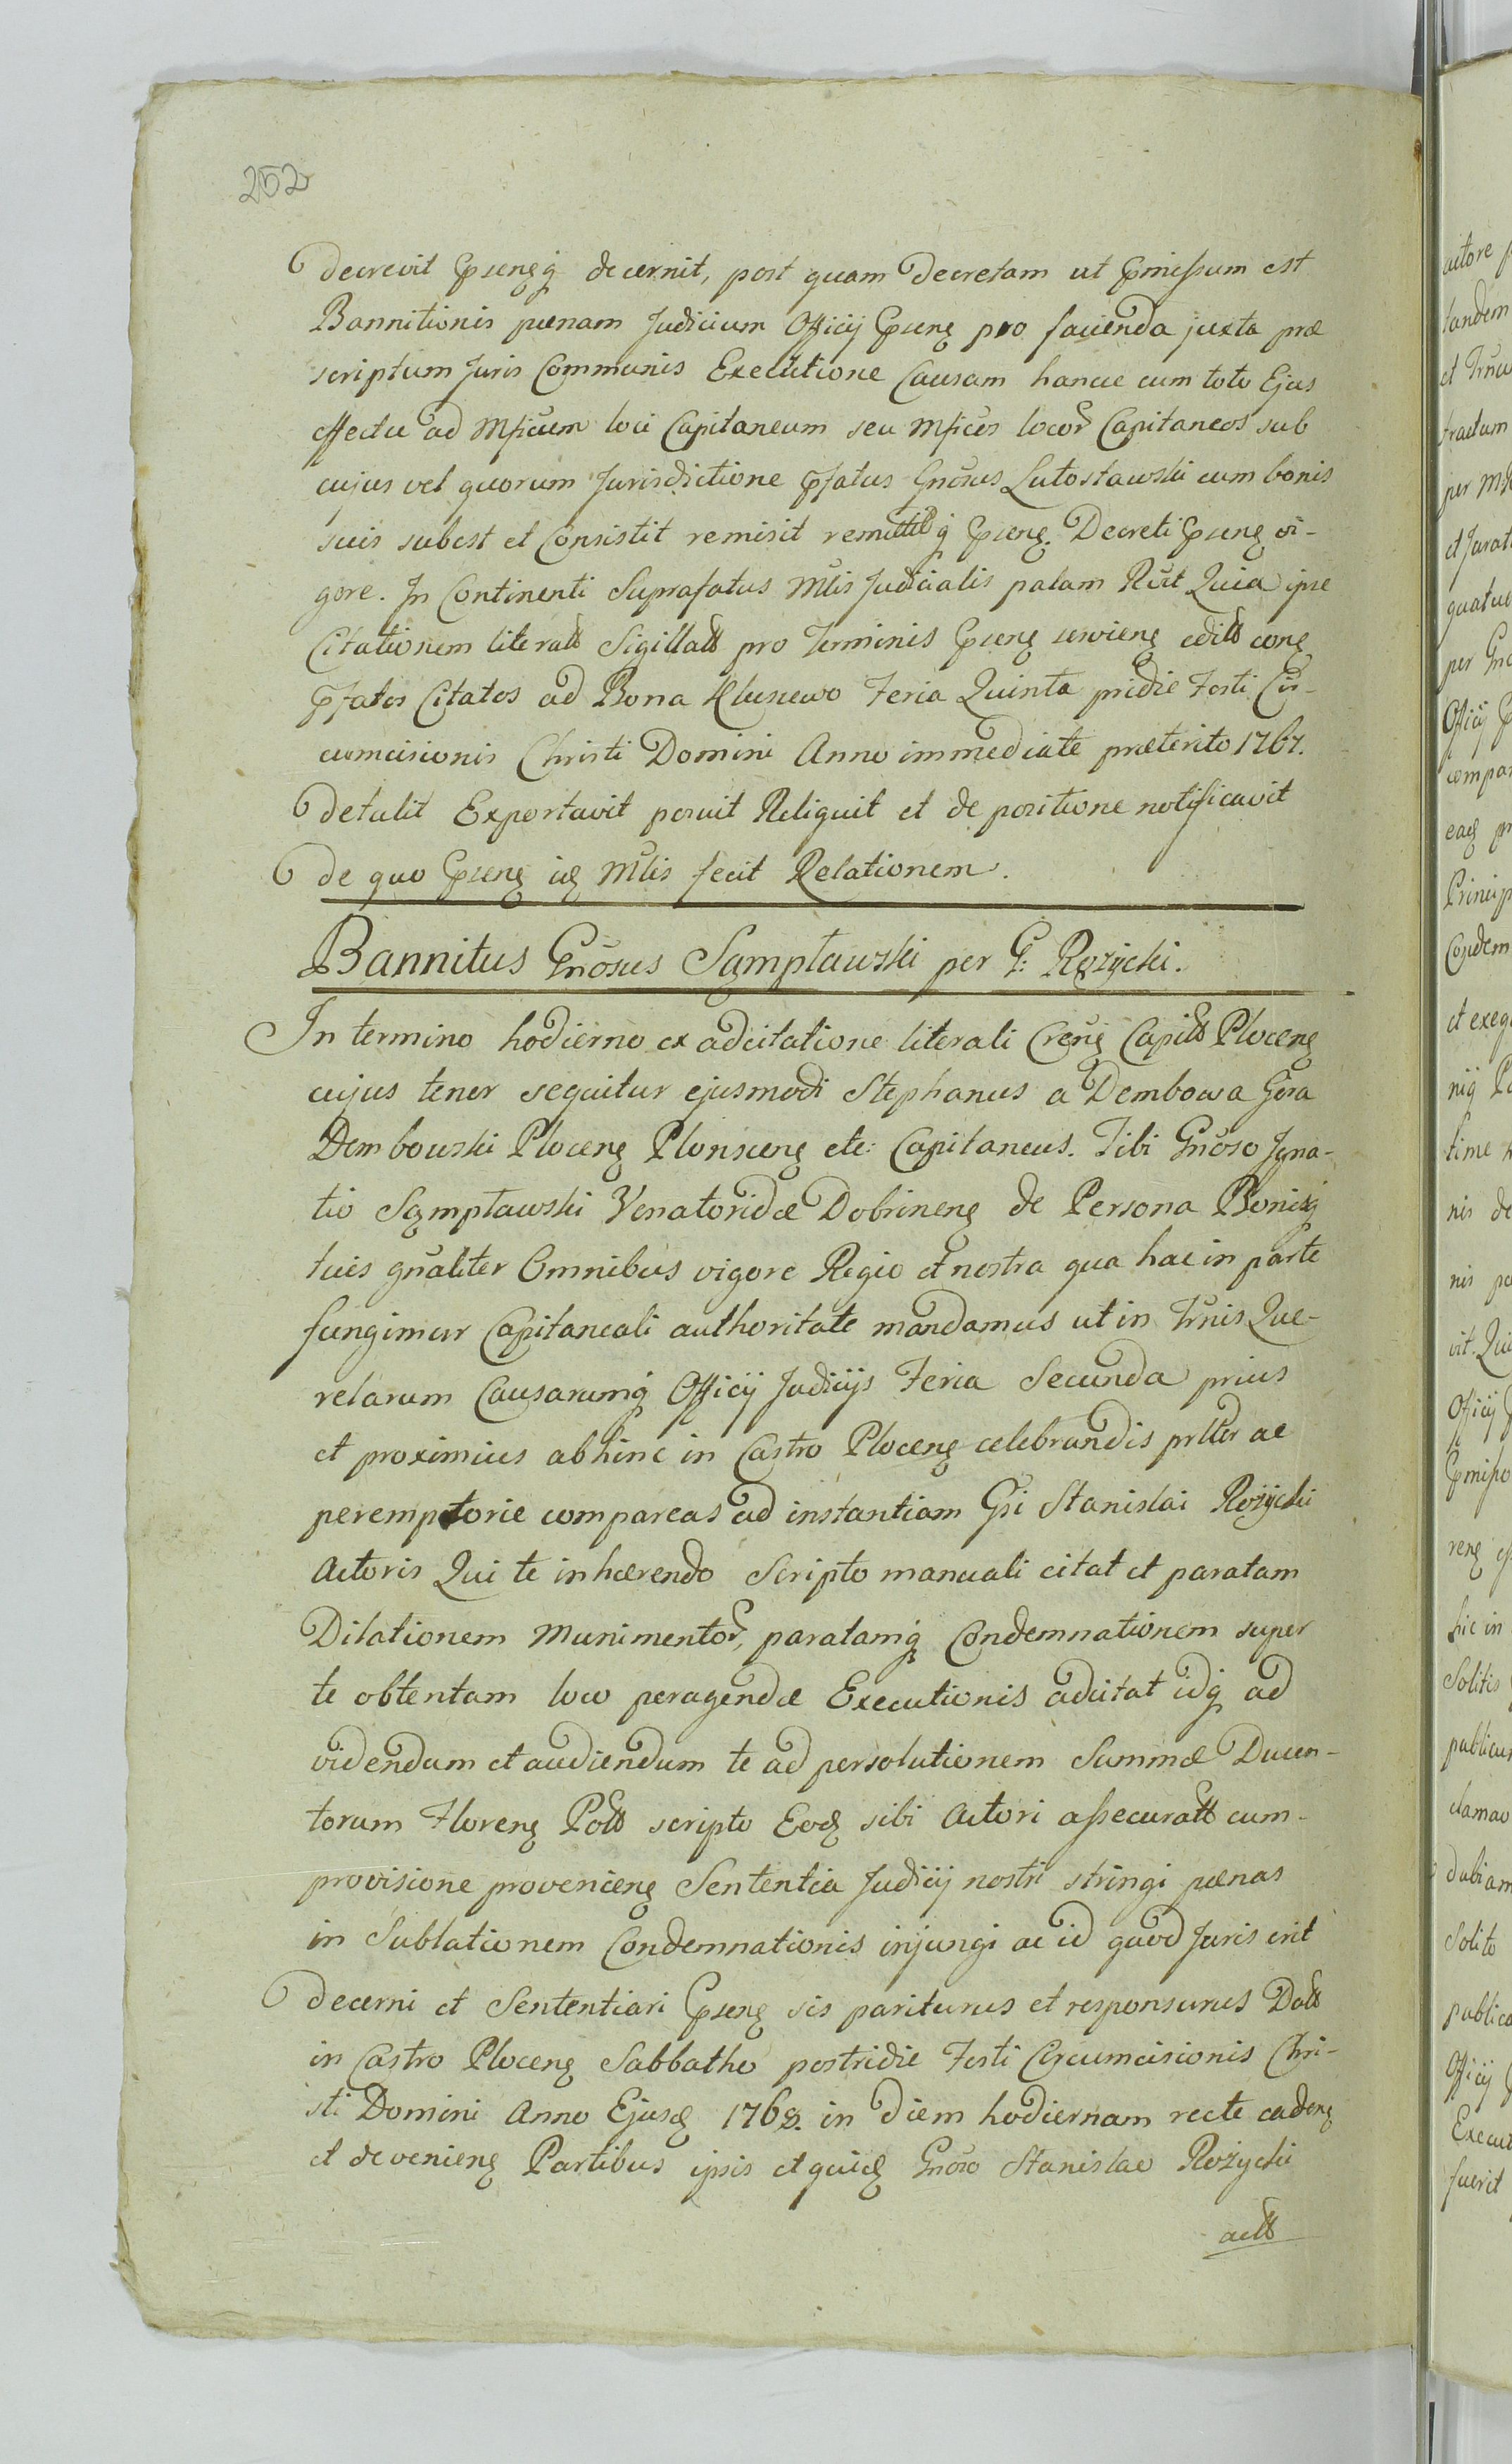 252
decrevit pñsensq₃ decernit, post quam Decretam ut pmissum est
Bannitionis pænam Judicium Officij pñsens pro facienda juxta præ
scriptum Juris Communis Executione Causam hance cum toto Ejus
effectu ad Mficum loci Capitaneum seu Mficos locor Capitaneos sub
cujus vel quorum Jurisdictione pfatus Gnosus Lutosławski cum bonis
suis subest et Consistit remisit remittitq₃ pñsens. Decreti pñsens vi-
gore. In Continenti Suprafatus Mtlis Judicialis palam Rūt Quia ipse
Citationem literatt Sigillatt pro Terminis pñsens serviens editt cons
pfatos Citatos ad Bona Klusnewo Feria Quinta pridie Festi Cir-
cumcisionis Christi Domini Anno immediate præterito 1767.
Detulit Exportavit posuit Reliquit et de positione notificavit
de quo pñsens id Mtlis fecit Relationem.
Bannitus Gnõsus Sąmpławski per G: Rożycki.
In termino hodierno ex adcitatione literali Crens Capitt Plocens
cujus tenor sequitur ejusmodi Stephanus a Dembowa Gora
Dembowski Plocens Plonscens etc: Capitaneus. Tibi Gnõso Igna-
tio Sąmpławski Venatoridæ Dobrinens de Persona Bonisq₃
tuis gñaliter Omnibus vigore Regio et nostra qua hac in parte
fungimur Capitaneali authoritate mandamus ut in Trnis Que-
relarum Causarumq₃ Officij Judicijs Feria Secunda prius
et proximius abhinc in Castro Plocens celebrandis prltter ac
peremptorie compareas ad instantiam Gsi Stanislai Rożycki
Actoris Qui te inhærendo Scripto manuali citat et paratam
Dilationem Munimentor, paratamq₃ Condemnationem super
te obtentam loco peragendæ Executionis adcitat idq₃ ad
videndum et audiendum te ad persolutionem Summæ Ducen-
torum Florens Poltt scripto Eod sibi Actori assecuratt cum
provisione proveniens Sententia Judicij nostri stringi pænas
in Sublationem Condemnationis injungi ac id quod Juris erit
decerni et Sententiari pñsens sis pariturus et responsurus Datt
in Castro Plocens Sabbatho postridie Festi Circumcisionis Chri-
sti Domini Anno Ejusd 1768. in diem hodiernam recte cadens
et deveniens Partibus ipsis et quid Gnõso Stanislao Rożycki
actt